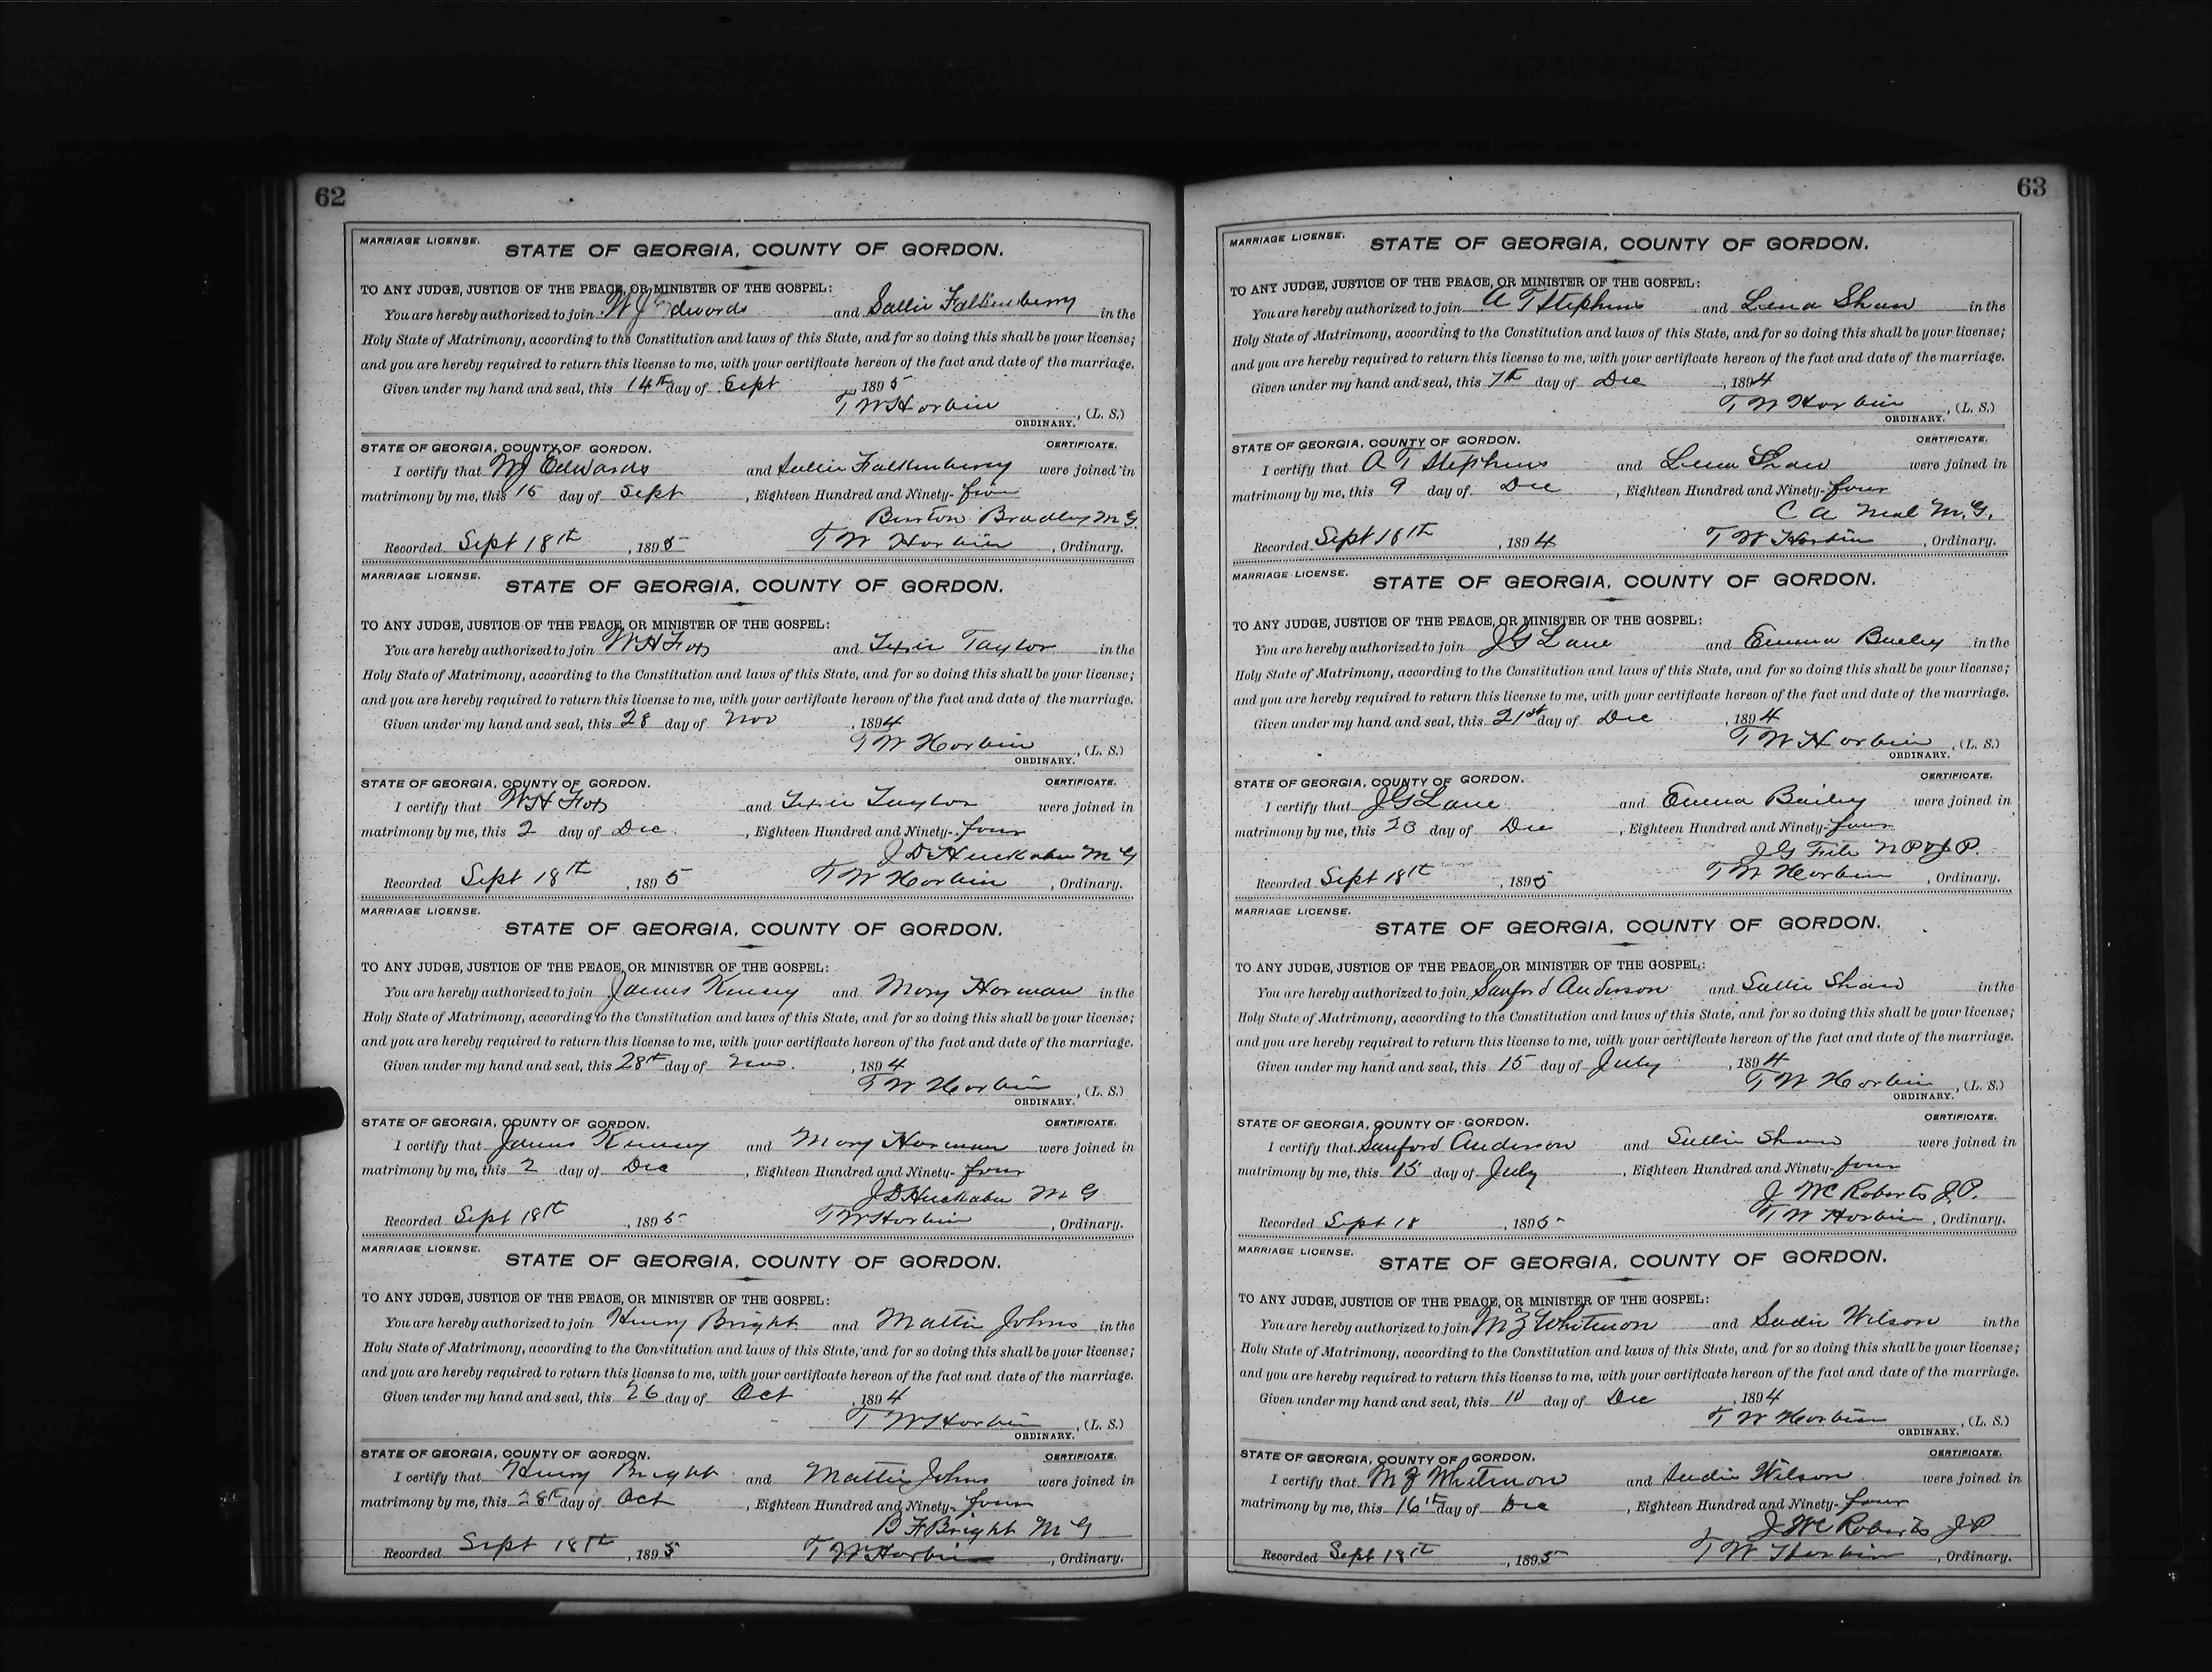 62
MARRIAGE LICENSE.
STATE OF GEORGIA, COUNTY OF GORDON.
TO ANY JUDGE, JUSTICE OF THE PEACE, OR MINISTER OF THE GOSPEL:
You are hereby authorized to join W J Edwards and Sallie Falkenberry in the
Holy State of Matrimony, according to the Constitution and laws of this State, and for so doing this shall be your license;
and you are hereby required to return this license to me, with your certificate hereon of the fact and date of the marriage.
Given under my hand and seal, this 14th day of Sept, 1895
T W Harbin, (L. S.)
ORDINARY.
STATE OF GEORGIA, COUNTY OF GORDON. CERTIFICATE.
I certify that W J Edwards and Sallie Falkenberry were joined in
matrimony by me, this 15 day of Sept, Eighteen Hundred and Ninety-five
Burton Bradley M G.
Recorded Sept 18th, 1895 T W Harbin, Ordinary.
MARRIAGE LICENSE.
STATE OF GEORGIA, COUNTY OF GORDON.
TO ANY JUDGE, JUSTICE OF THE PEACE, OR MINISTER OF THE GOSPEL:
You are hereby authorized to join W H Fox and Texie Taylor in the
Holy State of Matrimony, according to the Constitution and laws of this State, and for so doing this shall be your license;
and you are hereby required to return this license to me, with your certificate hereon of the fact and date of the marriage.
Given under my hand and seal, this 28 day of Nov, 1894
T W Harbin, (L. S.)
ORDINARY.
STATE OF GEORGIA, COUNTY OF GORDON. CERTIFICATE.
I certify that W H Fox and Texie Taylor were joined in
matrimony by me, this 2 day of Dec, Eighteen Hundred and Ninety-four
J D Huckabee M G
Recorded Sept 18th, 1895 T W Harbin, Ordinary.
MARRIAGE LICENSE.
STATE OF GEORGIA, COUNTY OF GORDON.
TO ANY JUDGE, JUSTICE OF THE PEACE, OR MINISTER OF THE GOSPEL:
You are hereby authorized to join James Kinsey and Mary Harman in the
Holy State of Matrimony, according to the Constitution and laws of this State, and for so doing this shall be your license;
and you are hereby required to return this license to me, with your certificate hereon of the fact and date of the marriage.
Given under my hand and seal, this 28th day of Nov., 1894
T W Harbin, (L. S.)
ORDINARY.
STATE OF GEORGIA, COUNTY OF GORDON. CERTIFICATE.
I certify that James Kinsey and Mary Harman were joined in
matrimony by me, this 2 day of Dec, Eighteen Hundred and Ninety-four
J D Huckabee M G
Recorded Sept 18th, 1895 T W Harbin, Ordinary.
MARRIAGE LICENSE.
STATE OF GEORGIA, COUNTY OF GORDON.
TO ANY JUDGE, JUSTICE OF THE PEACE, OR MINISTER OF THE GOSPEL:
You are hereby authorized to join Henry Bright and Mattie Johns in the
Holy State of Matrimony, according to the Constitution and laws of this State, and for so doing this shall be your license;
and you are hereby required to return this license to me, with your certificate hereon of the fact and date of the marriage.
Given under my hand and seal, this 26 day of Oct, 1894
T W Harbin, (L. S.)
ORDINARY.
STATE OF GEORGIA, COUNTY OF GORDON. CERTIFICATE.
I certify that Henry Bright and Mattie Johns were joined in
matrimony by me, this 28th day of Oct, Eighteen Hundred and Ninety-four
B F Bright M G
Recorded Sept 18th, 1895 T W Harbin, Ordinary.
63
MARRIAGE LICENSE.
STATE OF GEORGIA, COUNTY OF GORDON.
TO ANY JUDGE, JUSTICE OF THE PEACE, OR MINISTER OF THE GOSPEL:
You are hereby authorized to join A T Stephens and Lena Shaw in the
Holy State of Matrimony, according to the Constitution and laws of this State, and for so doing this shall be your license;
and you are hereby required to return this license to me, with your certificate hereon of the fact and date of the marriage.
Given under my hand and seal, this 7th day of Dec, 1894
T W Harbin, (L. S.)
ORDINARY.
STATE OF GEORGIA, COUNTY OF GORDON. CERTIFICATE.
I certify that A T Stephens and Lena Shaw were joined in
matrimony by me, this 9 day of Dec, Eighteen Hundred and Ninety-four
C A Neal M. G.
Recorded Sept 18th, 1894 T W Harbin, Ordinary.
MARRIAGE LICENSE.
STATE OF GEORGIA, COUNTY OF GORDON.
TO ANY JUDGE, JUSTICE OF THE PEACE, OR MINISTER OF THE GOSPEL:
You are hereby authorized to join J G Lane and Emma Bailey in the
Holy State of Matrimony, according to the Constitution and laws of this State, and for so doing this shall be your license;
and you are hereby required to return this license to me, with your certificate hereon of the fact and date of the marriage.
Given under my hand and seal, this 21st day of Dec, 1894
T W Harbin, (L. S.)
ORDINARY.
STATE OF GEORGIA, COUNTY OF GORDON. CERTIFICATE.
I certify that J G Lane and Emma Bailey were joined in
matrimony by me, this 23 day of Dec, Eighteen Hundred and Ninety-four
J G N P & J P.
Recorded Sept 18th, 1895 T W Harbin, Ordinary.
MARRIAGE LICENSE.
STATE OF GEORGIA, COUNTY OF GORDON.
TO ANY JUDGE, JUSTICE OF THE PEACE, OR MINISTER OF THE GOSPEL:
You are hereby authorized to join Sanford Anderson and Sallie Shaw in the
Holy State of Matrimony, according to the Constitution and laws of this State, and for so doing this shall be your license;
and you are hereby required to return this license to me, with your certificate hereon of the fact and date of the marriage.
Given under my hand and seal, this 15 day of July, 1894
T W Harbin, (L. S.)
ORDINARY.
STATE OF GEORGIA, COUNTY OF GORDON. CERTIFICATE.
I certify that Sanford Anderson and Sallie Shaw were joined in
matrimony by me, this 15 day of July, Eighteen Hundred and Ninety-four
J W C Roberts J. P.
Recorded Sept 18, 1895 T W Harbin, Ordinary.
MARRIAGE LICENSE.
STATE OF GEORGIA, COUNTY OF GORDON.
TO ANY JUDGE, JUSTICE OF THE PEACE, OR MINISTER OF THE GOSPEL:
You are hereby authorized to join M Z Whitmon and Sudie Wilson in the
Holy State of Matrimony, according to the Constitution and laws of this State, and for so doing this shall be your license;
and you are hereby required to return this license to me, with your certificate hereon of the fact and date of the marriage.
Given under my hand and seal, this 10 day of Dec, 1894
T W Harbin, (L. S.)
ORDINARY.
STATE OF GEORGIA, COUNTY OF GORDON. CERTIFICATE.
I certify that M Z Whitmon and Sudie Wilson were joined in
matrimony by me, this 16th day of Dec, Eighteen Hundred and Ninety-four
J W C Roberts J P
Recorded Sept 18th, 1895 T W Harbin, Ordinary.